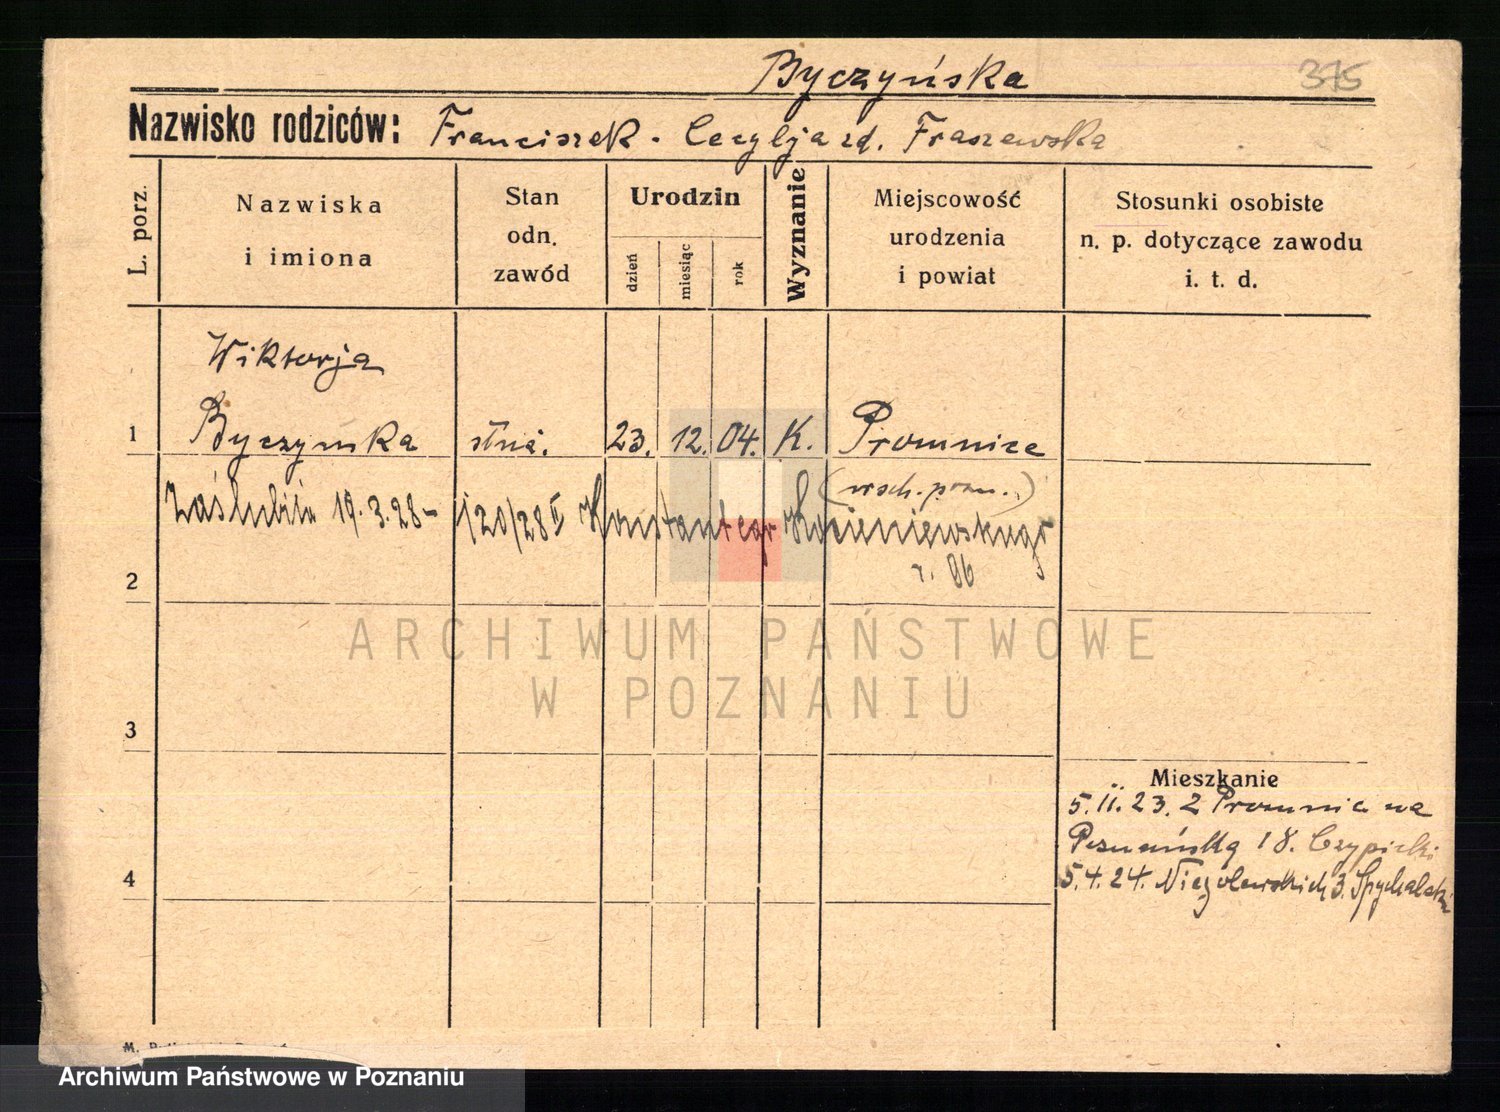 Byczyńska
375
Nazwisko rodziców: Franciszek - Cecylja zd. Fraszewska
L. porz.
Nazwiska
i imiona
Stan
odn.
zawód
Urodzin
dzień
miesiąc
rok
Wyznanie
Miejscowość
urodzenia
i powiat
Stosunki osobiste
n. p. dotyczące zawodu
i. t. d.
Wiktorja
1 Byczyńska służ. 23. 12. 04. K. Promnice
(wsch. pozn.)
zaślubiła 19.3.28 - 120/28 II Konstantego
r. 06
2
ARCHIWUM PAŃSTWOWE
W POZNANIU
3
Mieszkanie
5.II.23. z Promnic na
Poznańską 18. Czypicki
4
5.4.24. Niegolewskich 3. Spychalski
Archiwum Państwowe w Poznaniu